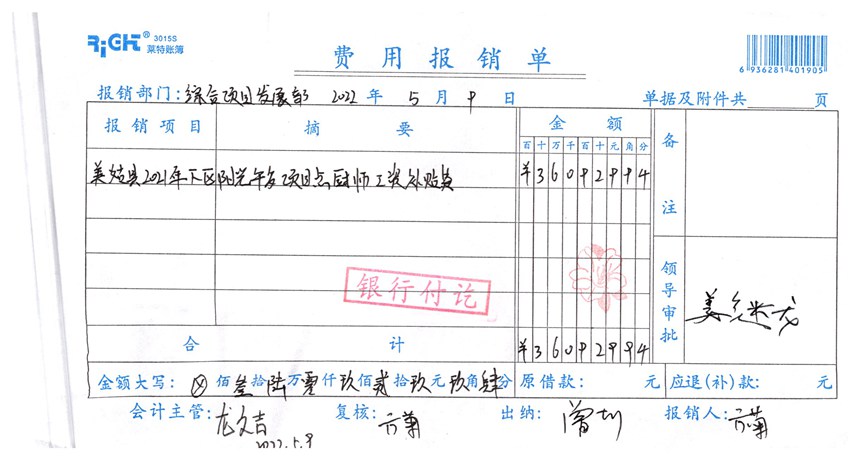 RiGHT® 3015S
莱特账簿
费用报销单
6 936281 401905
报销部门:综合项目发展部 2022 年 5 月 9 日 单据及附件共 页
报销项目 摘要 金额 备注
百十万千百十元角分
美姑县2021年下区阳光午餐项目点厨师工资补贴费 ¥36092994
银行付讫
领导审批
合计 ¥36092994
金额大写: ⊗ 佰叁拾陆万零仟玖佰贰拾玖元玖角肆分 原借款: 元 应退(补)款: 元
会计主管: 龙文吉 复核: 方菊 出纳: 报销人: 方菊
2022.5.9